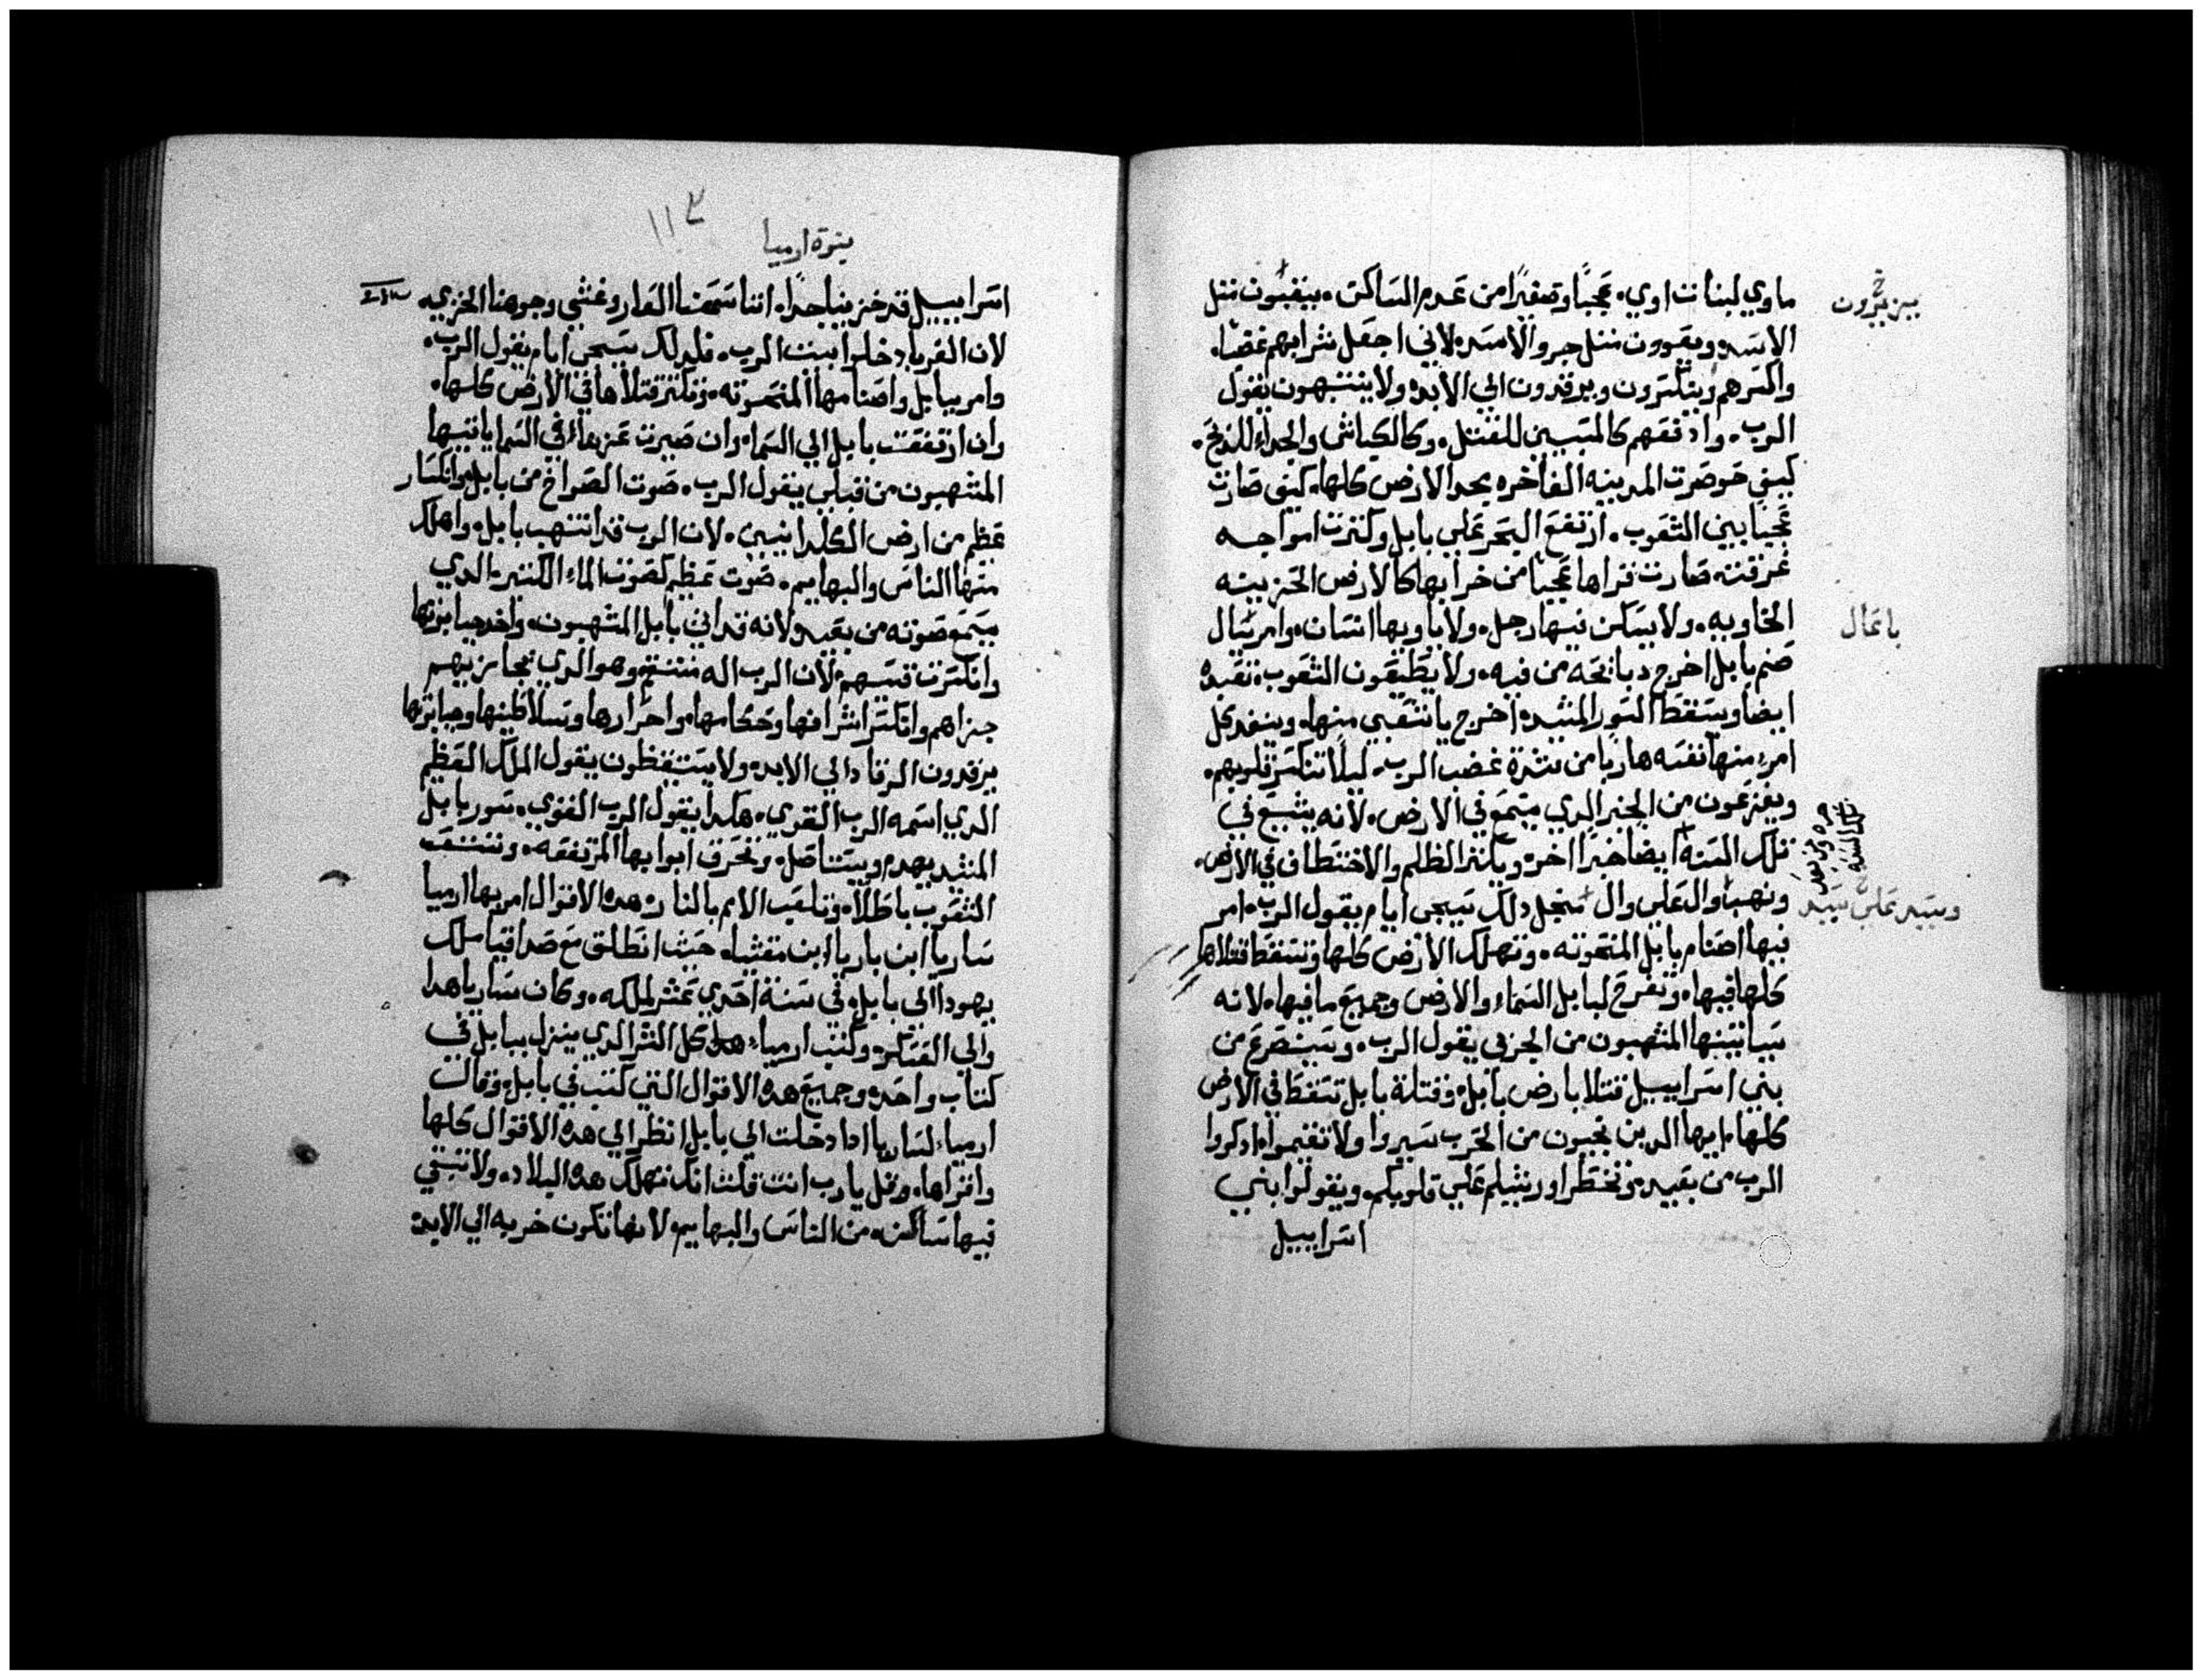 ماوي لبنات اوي. عجبًا وصفيرًا من عدم الساكن. ينقبون مثل
يزيرون
الاسد. ويعوون مثل جرو الاسد. لاني اجعل شرابهم غضبا.
واسكرهم ويسكرون ويرقدون الي الابد. ولا ينتبهون يقول
الرب. وادفعهم كالمسيبين للقتل. وكالكباش والجداء للذبح.
كيف حوصرت المدينه الفاخره بحد الارض كلها. كيف صارت
عجبًا بين الشعوب. ارتفع البحر علي بابل وكثرت امواجه
غرقته صارت قراها عجبا من خرابها كالارض الحزينه
الخاويه. ولا يسكن فيها رجل. ولا ياويها انسان. وامر بال
باعال
صنم بابل اخرج دبائحه من فيه. ولا يطيقون الشعوب تعبده
ايضا ويسقط السور المشيد. اخرج يا شعبي منها. وينفد كل
امرء منها نفسه هاربا من شدة غضب الرب. ليلا تنكسر قلوبهم.
ويفزعون من الخبر الدي يسمع في الارض. لانه يشيع في
تلك السنه ايضا خبرًا اخر. ويكثر الظلم والاختطاف في الارض.
ونهبا وال علي وال منجل دلك سيجي ايام يقول الرب. امر
وسيد علي سيد
فيها اصنام بابل المنحوته. وتهلك الارض كلها وتسقط قتلاها
كلها فيها. وتفرح لبابل السماء والارض وجميع ما فيها. لانه
سياتيتها المنتهبون من الجربي يقول الرب. وسيتصرع من
بني اسراييل قتلا بارض بابل. وقتلة بابل تسقط في الارض
كلها. ايها الدين نجيون من الحرب سيروا ولا تقيموا. ادكروا
الرب من بعيد. وتخطر اورشيلم علي قلوبكم. ويقولوا بني
اسراييل
١١٣
نبوة ارميا
اسراييل قد خزينا جدا. اننا سمعنا العار وغشي وجوهنا الخزي.
لان الغربا دخلوا بيت الرب. فلدلك سيجي ايام يقول الرب.
وامر ببابل واصنامها المنحوته. وتكثر قتلاها في الارض كلها.
وان ارتفعت بابل الي السما. وان صيرت عزها في السما ياتيها
المنتهبون من قبلي يقول الرب. صوت الصراخ من بابل. وانكسار
عظم من ارض الكلدانيين. لان الرب قد انتهب بابل. واهلك
منها الناس والبهايم. صوت عظيم كصوت الماء الكثير. الدي
يسمع صوته من بعيد ولانه قد اني بابل المنتهبون. واخد جبابرتها
وانكسرت قسيهم لان الرب اله منتقم وهو الدي يجازيهم
جزاهم وانكسر اشرافها وحكامها. واحرارها وتسلاطينها وجبابرتها
يرقدون الرقاد الي الابد. ولا يستيقظون يقول الملك العظيم
الدي اسمه الرب القوي. هكدا يقول الرب القوي. سور بابل
المشيد يهدم ويستاصل. وتحرق ابوابها المرتفعه. وتشقف
الشعوب باطلا. وتلعب الامم بالنار. هده الاقوال امر بها ارميا
ساريا ابن باريا ابن معشيا. حيث انطلق مع صداقيا ملك
يهودا الي بابل. في سنة احدي عشر لملكه. وكان ساريا هدا
والي العسكر. وكتب ارمياء كل الشر الدي ينزل ببابل في
كتاب واحد. وجميع هده الاقوال التي كتب في بابل. وقال
ارمياء لساريا ادا دخلت الي بابل انظر الي هده الاقوال كلها
واقراها. وقل يارب انت قلت انك تهلك هده البلاد. ولا تبقي
فيها ساكن. من الناس والبهايم. لانها تكون خربه الي الابد.